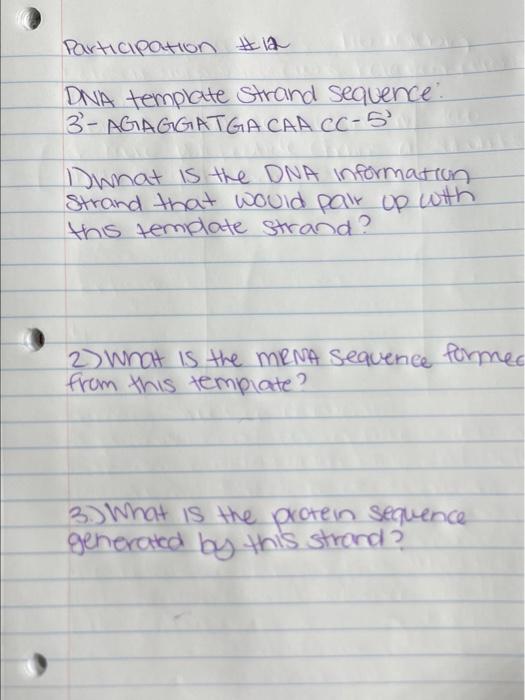 Participation #12
DNA template strand sequence:
3'- AGAGGATGACAACC-5'
1) What is the DNA information
strand that would pair up with
this template strand?
2) What is the mRNA sequence formed
from this template?
3.) What is the protein sequence
generated by this strand?